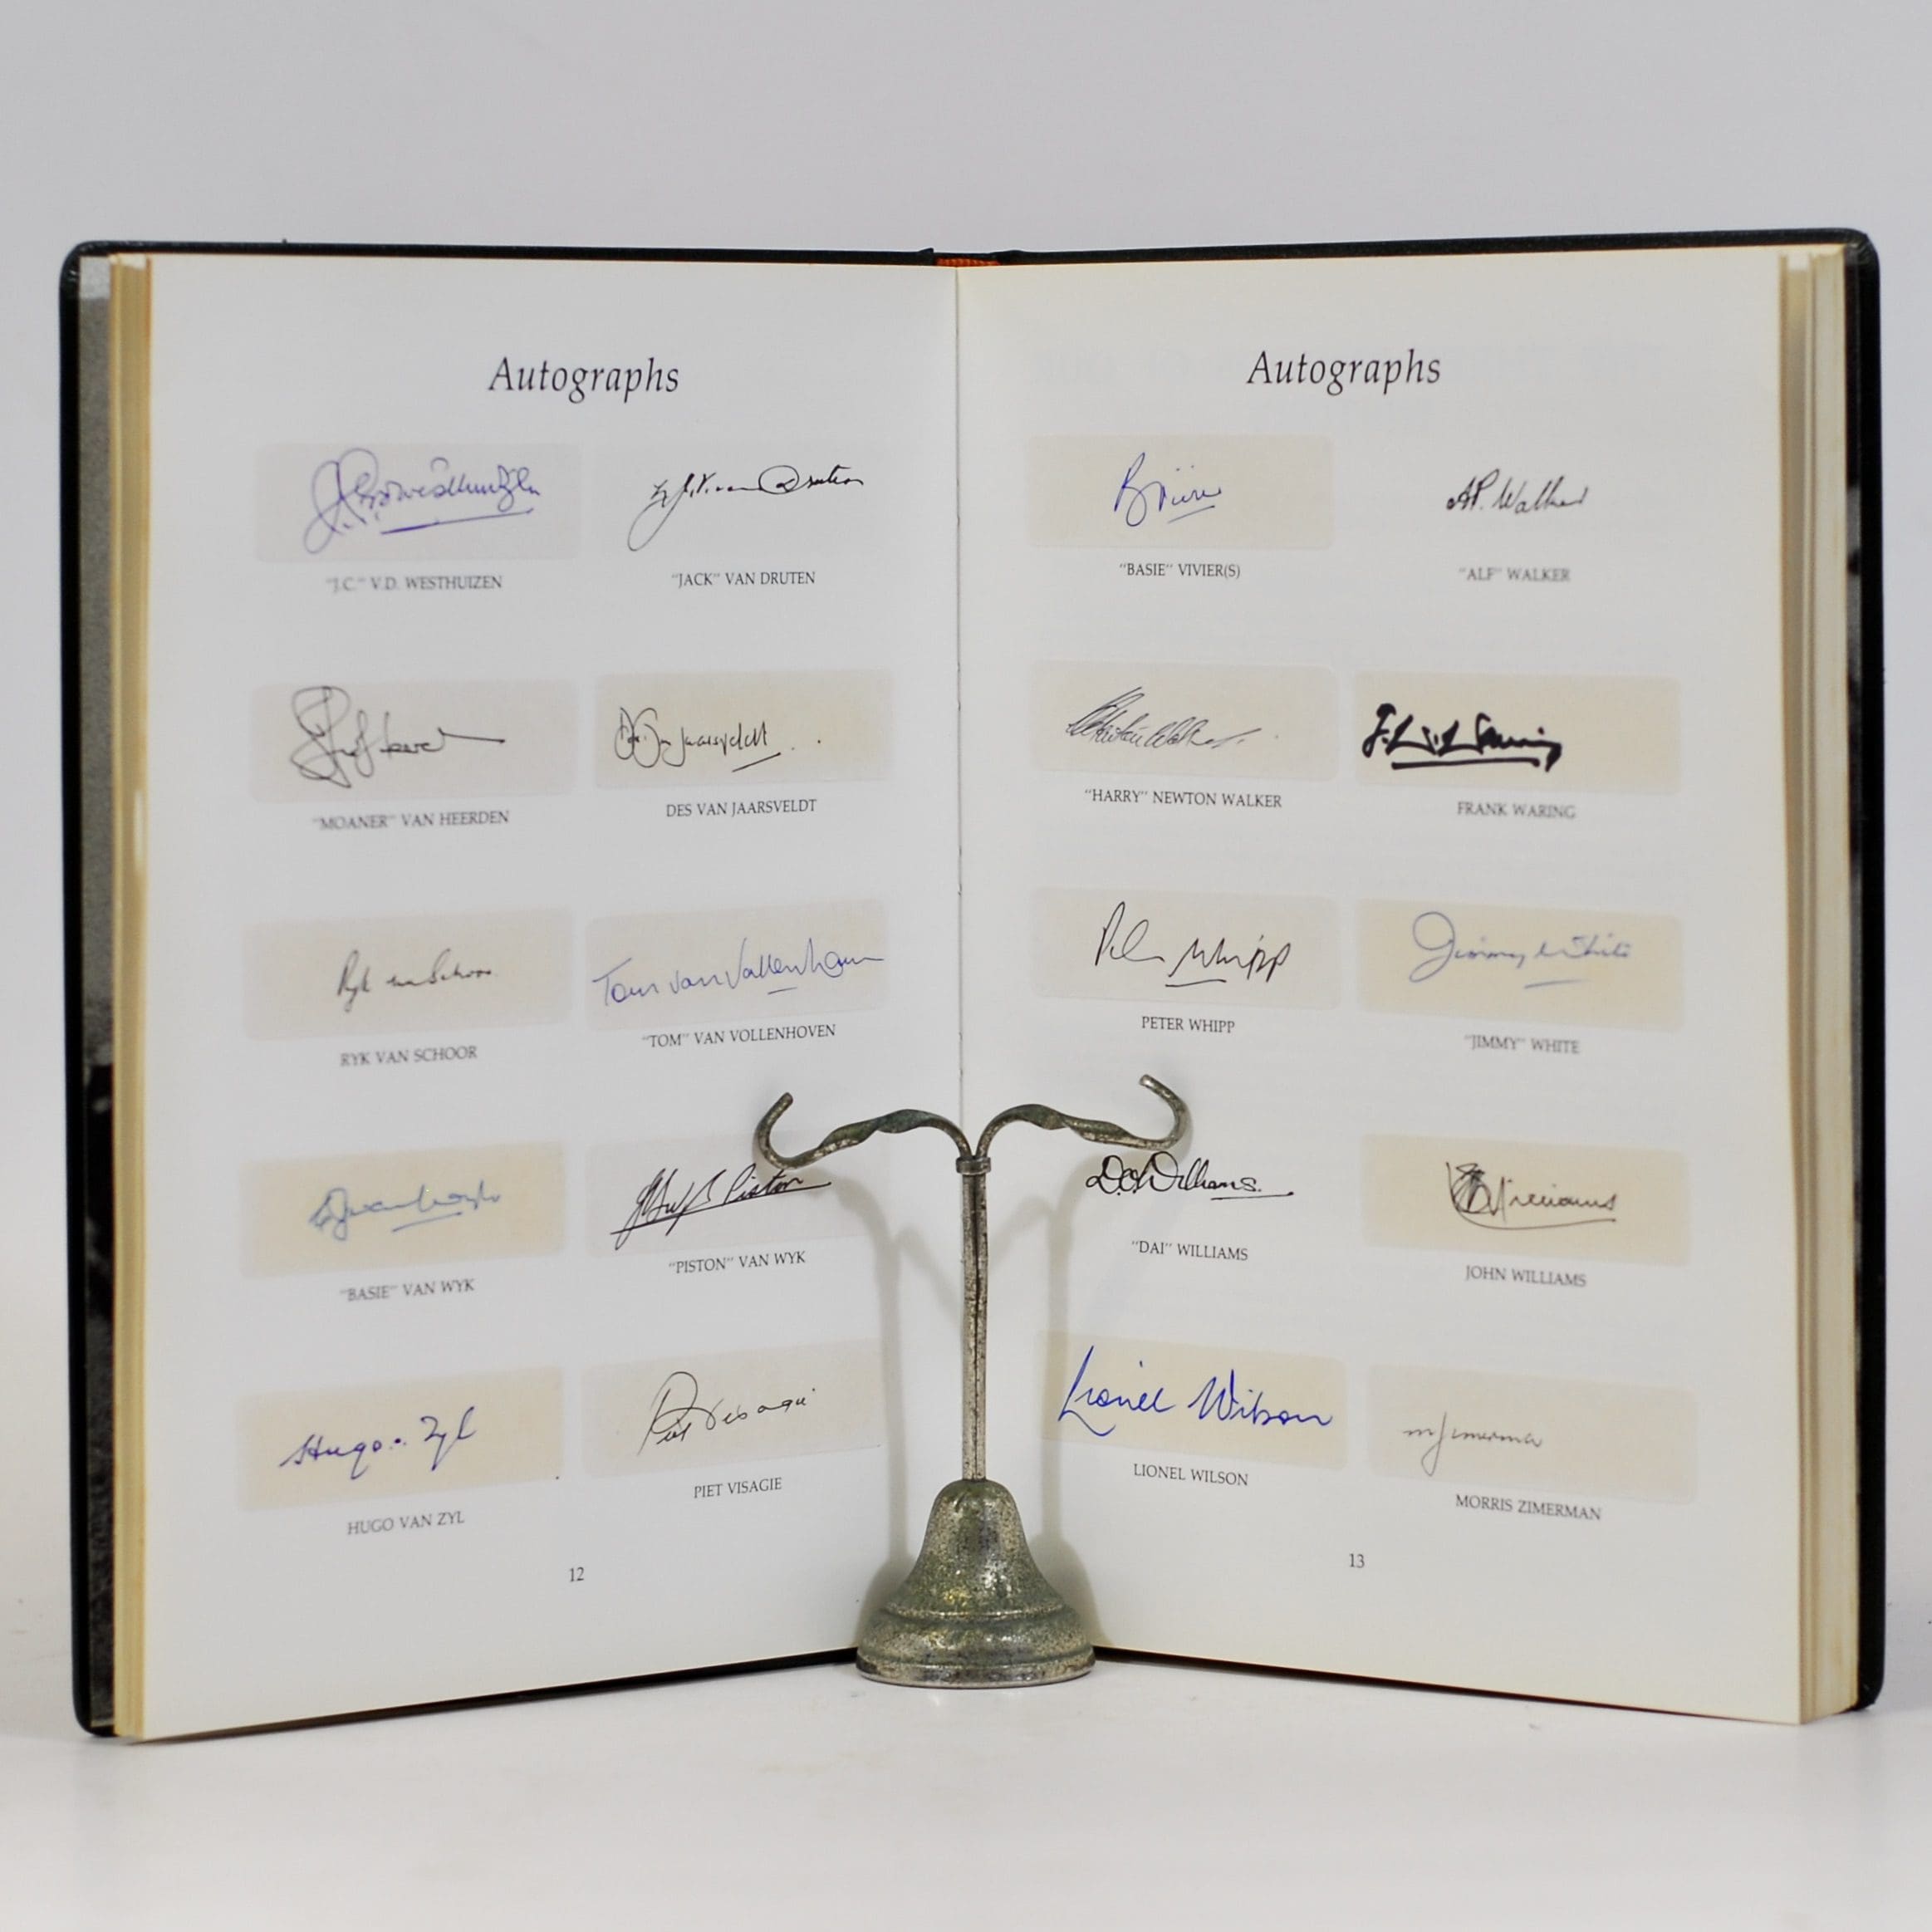 Autographs
"J.C." V.D. WESTHUIZEN
"JACK" VAN DRUTEN
"MOANER" VAN HEERDEN
Jaarsveldt
DES VAN JAARSVELDT
Ryk van Schoor
Tom van Vollenhoven
RYK VAN SCHOOR
"TOM" VAN VOLLENHOVEN
Piston
"BASIE" VAN WYK
"PISTON" VAN WYK
Hugo v. Zyl
Piet Visagie
HUGO VAN ZYL
PIET VISAGIE
12
Autographs
A.P. Walker
"BASIE" VIVIER(S)
"ALF" WALKER
"HARRY" NEWTON WALKER
FRANK WARING
Whipp
Jimmy White
PETER WHIPP
"JIMMY" WHITE
D.O. Williams.
Williams
"DAI" WILLIAMS
JOHN WILLIAMS
Lionel Wilson
LIONEL WILSON
MORRIS ZIMERMAN
13